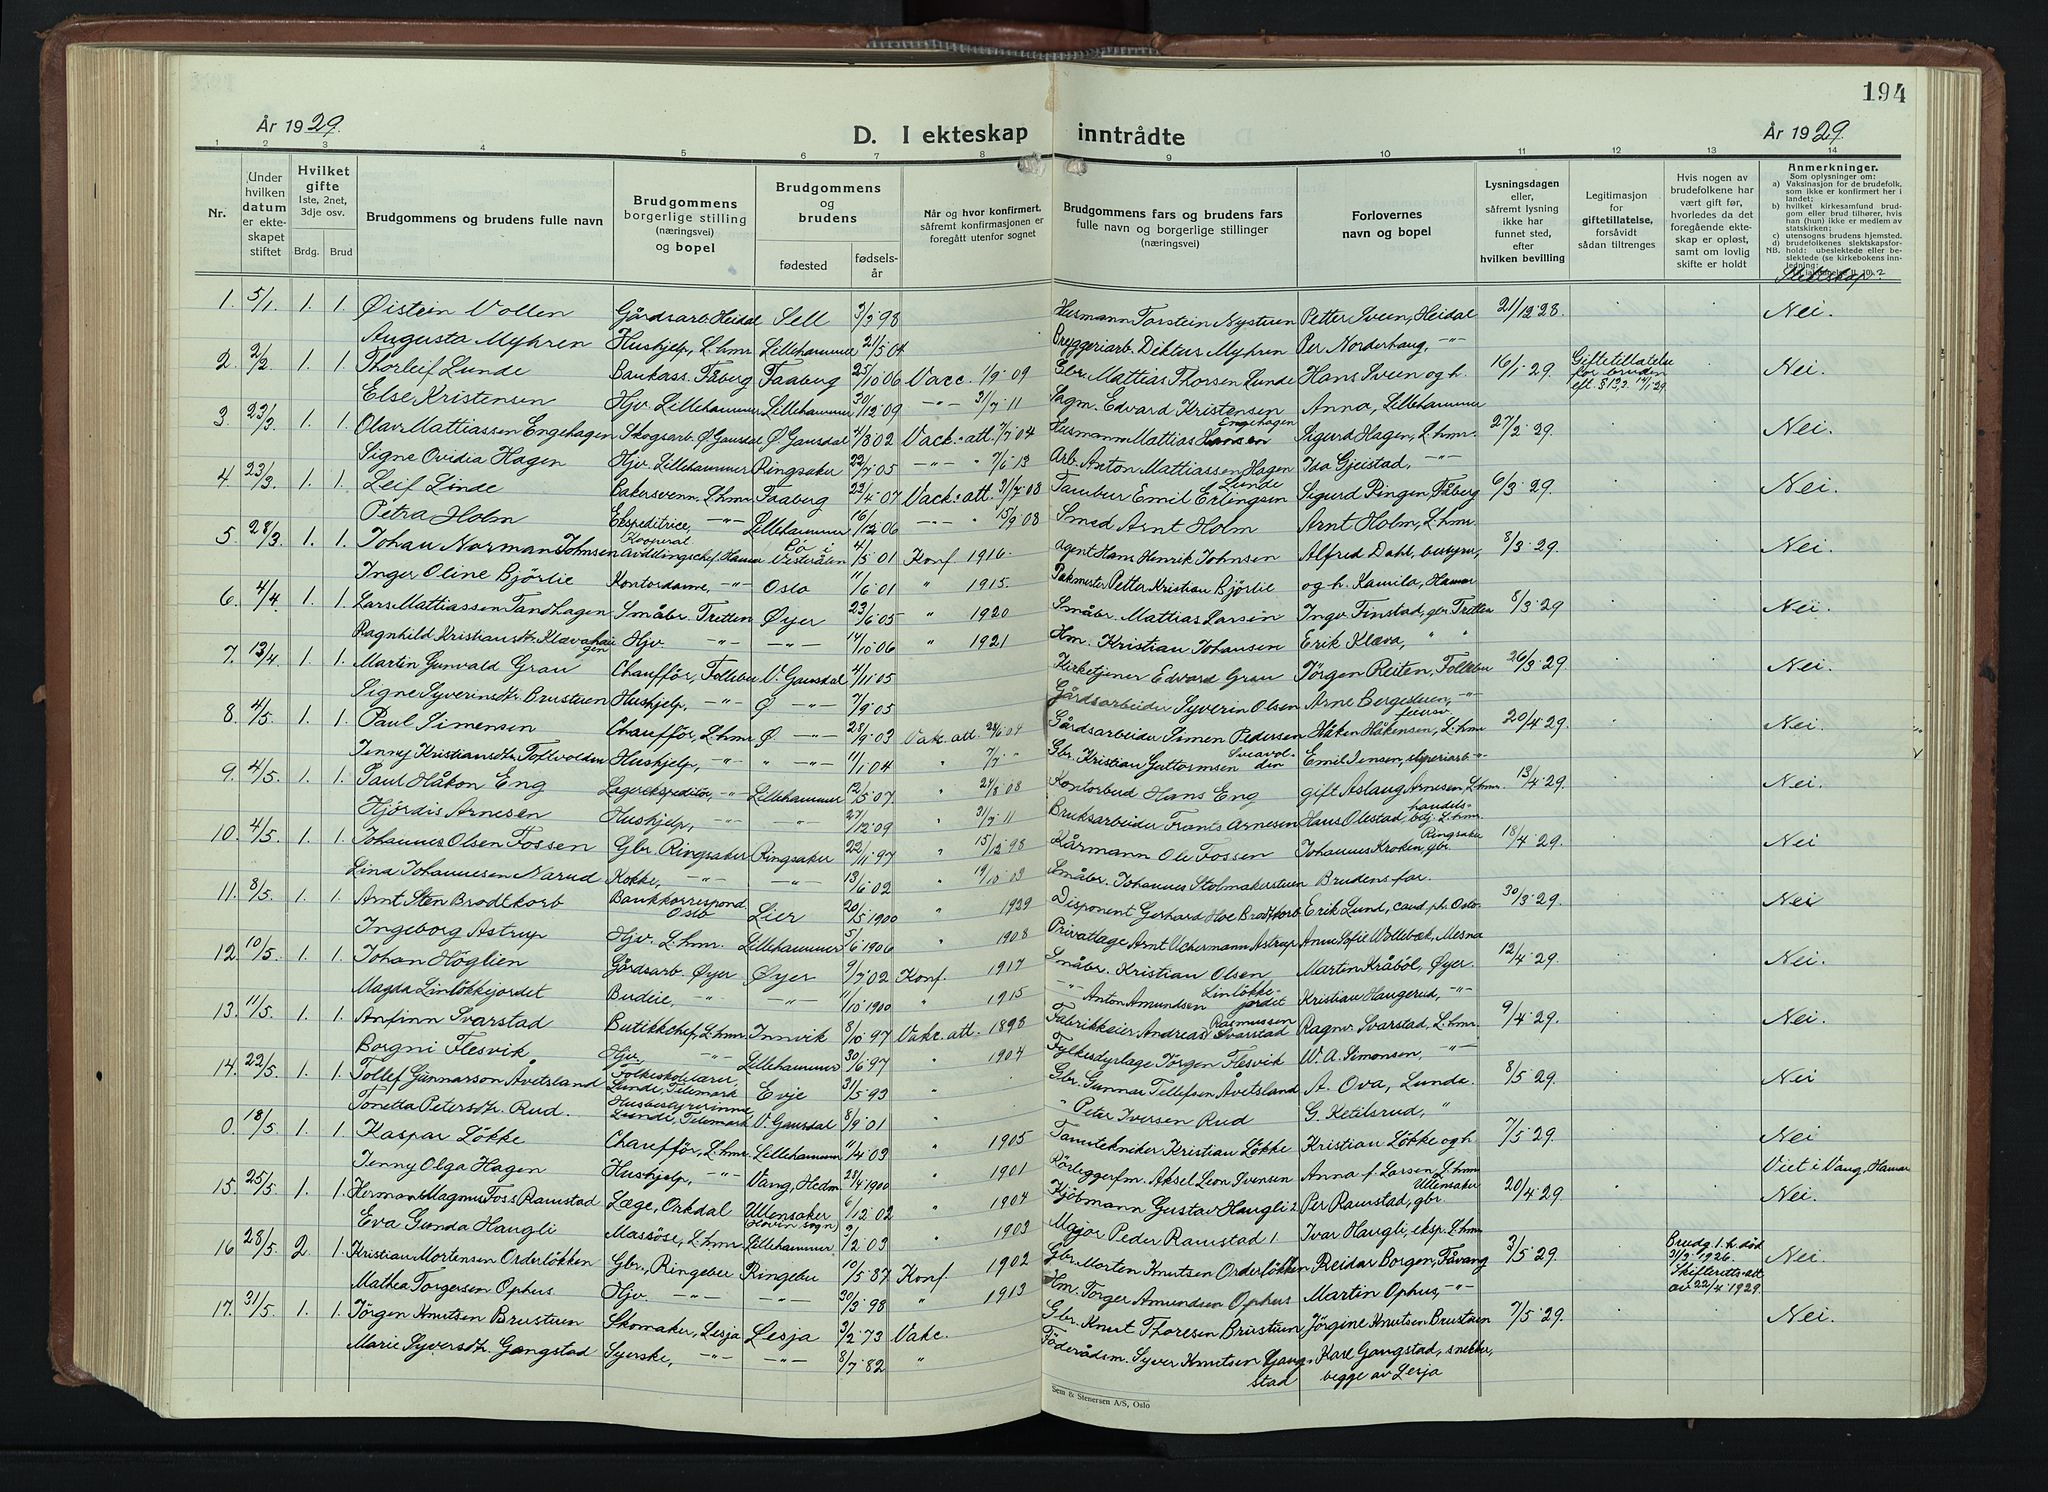 194
År 1929.
D. I ekteskap inntrådte
År 1929.
1 2 3 4 5 6 7 8 9 10 11 12 13 14
Nr.
Under hvilken datum er ekteskapet stiftet
Hvilket gifte 1ste, 2net, 3dje osv.
Brdg. Brud
Brudgommens og brudens fulle navn
Brudgommens borgerlige stilling (næringsvei) og bopel
Brudgommens og brudens
fødested
fødselsår
Når og hvor konfirmert, såfremt konfirmasjonen er foregått utenfor sognet
Brudgommens fars og brudens fars fulle navn og borgerlige stillinger (næringsvei)
Forlovernes navn og bopel
Lysningsdagen eller, såfremt lysning ikke har funnet sted, efter hvilken bevilling
Legitimasjon for giftetillatelse, forsåvidt sådan tiltrenges
Hvis nogen av brudefolkene har vært gift før, hvorledes da det foregående ekteskap er opløst, samt om lovlig skifte er holdt
Anmerkninger.
Som oplysninger om:
a) Vaksinasjon for de brudefolk, som ikke er konfirmert her i landet;
b) hvilket kirkesamfund brudgom eller brud tilhører, hvis han (hun) ikke er medlem av statskirken;
c) utensogns brudens hjemsted.
d) brudefolkenes slektskapsforhold: ubeslektede eller beslektede (se kirkebokens innledning;
NB.
Slektskap?
1. 5/1. 1. 1. Øistein Vollen Gårdsarb. Heidal Sell 3/3 98 Husmann Torstein Nystuen Petter Sveen, Heidal 21/12 28. Nei.
Augusta Myhren Hushjelp, L.hmr. Lillehammer 21/5 04 Bryggeriarb. Diktus Myhren Per Norderhaug, -"-
2. 2/2. 1. 1. Thorleif Lunde Bankass. Fåberg Faaberg 25/10 06 Vacc. 1/9 09 Gbr. Mattias Thorsen Lunde Hans Sveen og h. 16/1 29. Giftetillatelse for bruden eft. § 13,3. 14/1 29. Nei.
Else Kristensen Hjv. Lillehammer Lillehammer 30/12 09 -"- 31/7 11 Sagm. Edvard Kristensen Anna, Lillehammer
3. 23/3. 1. 1. Olav Mattiassen Engehagen Skogsarb. Ø. Gausdal Ø. Gausdal 4/3 02 Vack. att. 7/7 04 Husmann Mattias Hansen Engehagen Sigurd Hagen, L.hmr. 27/2 29. Nei.
Signe Ovidia Hagen Hjv. Lillehammer Ringsaker 22/7 05 -"- " 7/6 13 Arb. Anton Mattiassen Hagen Ida Gjeistad, -"-
4. 23/3. 1. 1. Leif Linde Bakersvenn, L.hmr. Faaberg 22/4 07 Vack. att. 31/7 08 Tambur Emil Erlingsen Lunde Sigurd Ringen, Fåberg 6/3 29. Nei.
Petra Holm Ekspeditrice, -"- Lillehammer 16/12 06 -"- " 15/9 08 Smed Arnt Holm Arnt Holm, L.hmr.
5. 28/3. 1. 1. Johan Norman Johnsen Avdelingschef, Hamar Bö i Vesterålen 4/5 01 Konf. 1916. Agent Hans Henrik Johnsen Alfred Dahl, bestyrer, 8/3 29. Nei.
Inger Oline Bjørlie Kontordame, -"- Oslo 11/6 01 " 1915. Pakmester Petter Kristian Bjørlie og h. Kamila, Hamar
6. 4/4. 1. 1. Lars Mattiassen Tandhagen Småbr. Tretten Øyer 23/6 05 " 1920 Småbr. Mattias Larsen Ingv. Finstad, gbr. Tretten 8/3 29. Nei.
Ragnhild Kristiansdtr. Klævahaugen Hjv. -"- -"- 14/10 06 " 1921 Hm. Kristian Johansen Erik Klæva, " "
7. 13/4 1. 1. Martin Gunvald Grau Chaufför, Follebu V. Gausdal 4/11 05 Kirketjener Edvard Grau Jörgen Reiten, Follebu 26/3 29. Nei.
Signe Syverinsdtr. Brustuen Hushjelp, -"- Ø -"- 7/9 05 Gårdsarbeider Syverin Olsen Arne Bergestuen, -"-
8. 4/5. 1. 1. Paul Simensen Chaufför, L.hmr. Ø -"- 28/9 03 Vakc. att. 28/6 04 Gårdsarbeider Simen Pedersen Håken Håkensen, feiersv. L.hmr 20/4 29. Nei.
Jenny Kristiansdtr. Toftvolden Hushjelp, -"- " -"- 11/1 04 " 7/7 " Gbr. Kristian Guttormsen Emil Jensen, -"-
9. 4/5. 1. 1. Paul Håkon Eng Lagerekspeditör, -"- Lillehammer 12/5 07 " 24/8 08 Kontorbud Hans Eng gift Aslaug Arnesen, L.hmr. 13/4 29. Nei.
Hjördis Arnesen Hushjelp, -"- -"- 27/12 09 " 31/7 11 Bruksarbeider Frants Arnesen Hans Olestad, handelsbetj. L.hmr.
10. 4/5. 1. 1. Johannes Olsen Fossen Gbr. Ringsaker Ringsaker 22/11 97 " 15/12 98 Kårmann Ole Fossen Johannes Kroken, gbr. Ringsaker 18/4 29. Nei
Lina Johannesen Narud Kokke, -"- -"- 13/6 02 " 19/10 03 Småbr. Johannes Stolmakerstuen Brudens far.
11. 8/5. 1. 1. Arnt Sten Brodtkorb Bankkorrespond. Oslo Lier 20/5 1900 " 1929 Disponent Gerhard Hoe Brodtkorb Erik Lund, cand. ph. Oslo. 30/3 29. Nei
Ingeborg Astrup Hjv. L.hmr. Lillehammer 5/6 1906 " 1908 Privatlæge Arnt Uchermann Astrup Anne Sofie Wollebæk, Mesna
12. 10/5. 1. 1. Johan Höglien Gårdsarb. Øyer Øyer 9/7 02 Konf. 1917 Småbr. Kristian Olsen Martin Kråböl, Øyer. 12/4 29. Nei.
Magda Linlökkejordet Budeie, -"- -"- 11/10 1900 " 1915 -"- Anton Amundsen Linlökkejordet Kristian Haugerud, -"-
13. 11/5. 1. 1. Anfinn Svarstad Butikkchef, L.hmr. Innvik 8/10 97 Vakc. att. 1898 Fabrikkeier Andreas Rasmussen Svarstad Ragnv. Svarstad, L.hmr. 9/4 29. Nei.
Borgni Flesvik Hjv. -"- Lillehammer 30/6 97 " 1904 Fylkesdyrlæge Jörgen Flesvik W. A. Simonsen, -"-
14. 22/5. 1. 1. Tollef Gunnarson Åvitsland Folkeskolelærer, Lunde, Telemark Evje 31/5 93 " Gbr. Gunnar Tellefsen Åvitsland A. Ova, Lunde. 8/5 29. Nei
Tonetta Petersdtr. Rud. Husbestyrerinne, Lunde, Telemark V. Gausdal 8/9 01 " " Peter Iversen Rud G. Ketilsrud, "
0. 18/5. 1. 1. Kaspar Lökke Chaufför, L.hmr. Lillehammer 11/4 03 " 1905 Tanntekniker Kristian Lökke Kristian Lökke og h. 7/5 29. Nei
Jenny Olga Hagen Hushjelp, -"- Vang, Hedm. 28/4 1900 " 1901 Rörleggerfm. Aksel Leon Svensen Anna f. Larsen, L.hmr. Viet i Vang, Hamar
15. 25/5. 1. 1. Herman Magnus Foss Ramstad Læge, Orkdal Ullensaker (Hovin sogn) 6/12 02 " 1904 Kjöbmann Gustav Haugli 2 Per Ramstad, gbr. Ullensaker 20/4 29. Nei.
Eva Gunda Haugli Massöse, L.hmr. Lillehammer 9/2 03 " 1903 Major Peder Ramstad 1 Ivar Haugli, eksp. L.hmr
16. 28/5. 2. 1. Kristian Mortensen Orderlökken Gbr., Ringebu Ringebu 10/5 87 Konf. 1902 Gbr. Morten Knutsen Orderlökken Reidar Borgen, Fåvang 3/5 29. Brudg. 1. h. död 31/3 1926. Skifteretts-att av 22/4 1929. Nei.
Mathea Torgersen Ophus Hjv. -"- -"- 30/3 98 " 1913 Hm. Torger Amundsen Ophus Martin Ophus, -"-
17. 31/5. 1. 1. Jörgen Knutsen Brustuen Skomaker, Lesja Lesja 3/2 73 Vakc. Gbr. Knut Thoresen Brustuen Jörgine Knutsen Brustuen 7/5 29. Nei.
Marie Syversdtr. Gangstad Syerske, -"- -"- 8/7 82 " Föderådsm. Syver Knutsen Gangstad Karl Gangstad, snekker, begge av Lesja
Sem & Stenersen A/S, Oslo